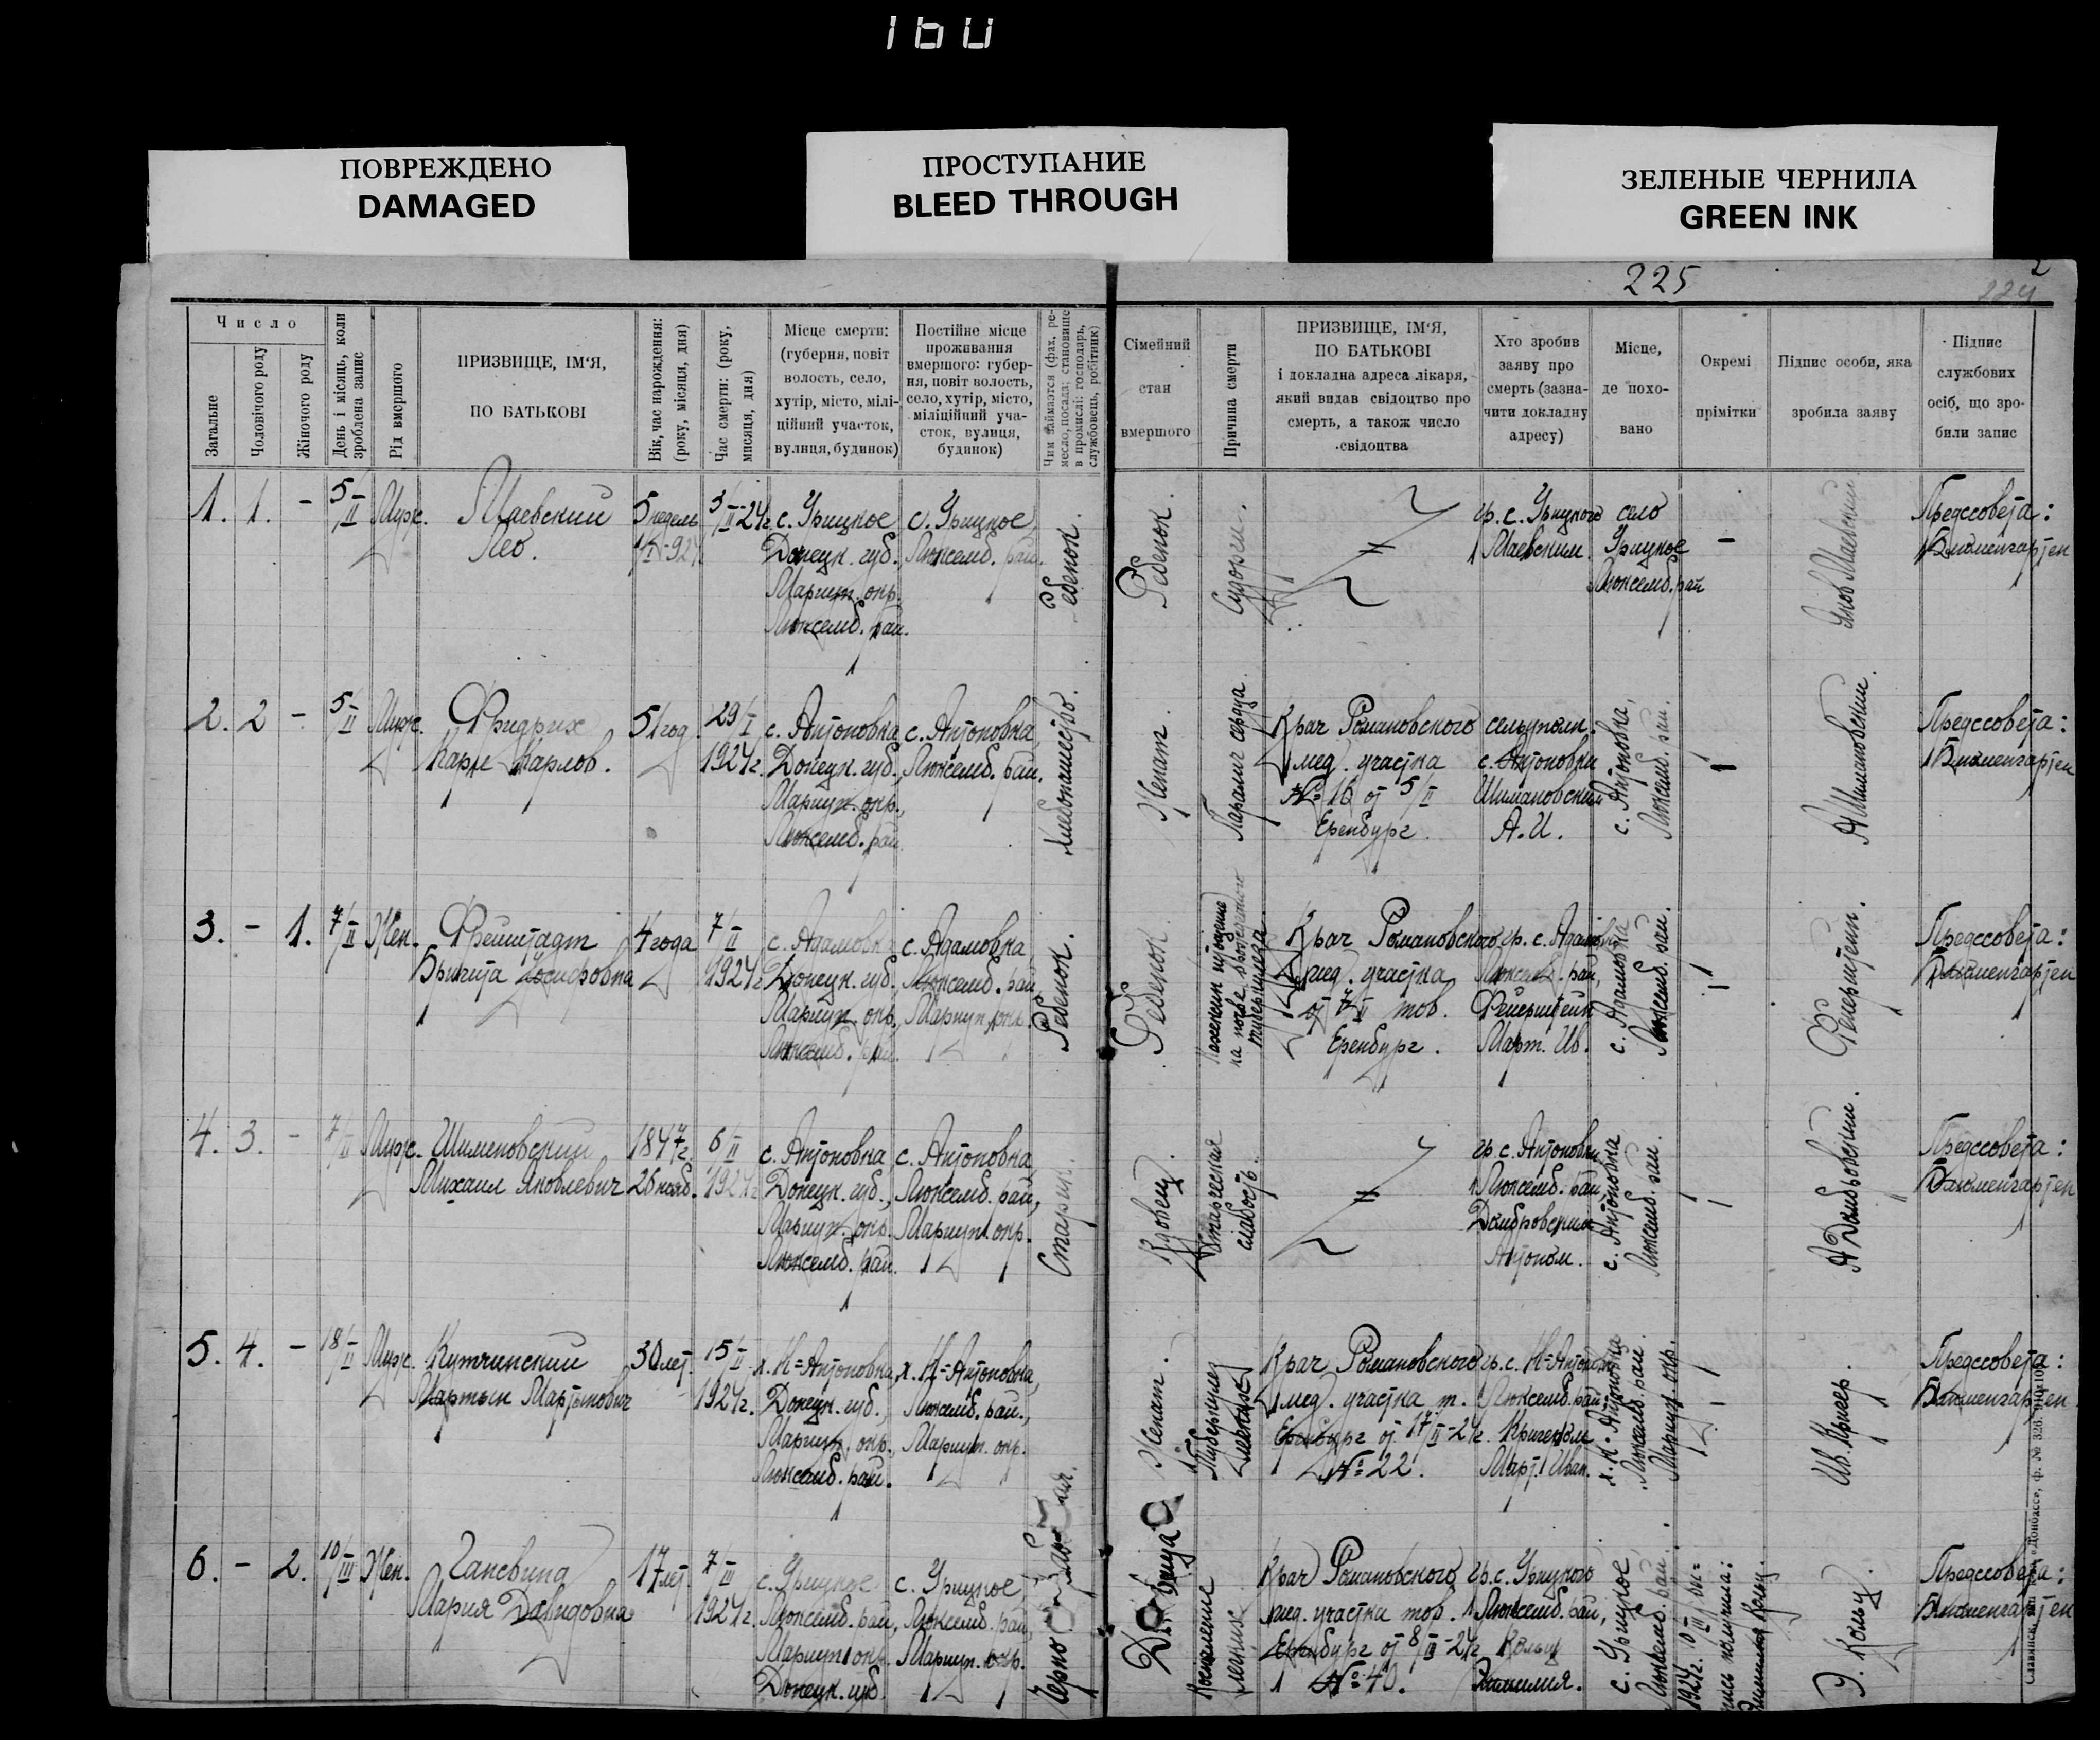 160
ПОВРЕЖДЕНО
DAMAGED
ПРОСТУПАНИЕ
BLEED THROUGH
ЗЕЛЕНЫЕ ЧЕРНИЛА
GREEN INK
225
2
224
Число
Загальне
Чоловічого роду
Жіночого роду
День і місяць, коли
зроблена запис
Рід вмершого
ПРИЗВИЩЕ, ІМ'Я,
ПО БАТЬКОВІ
Вік, час нарождення:
(року, місяця, дня)
Час смерти: (року,
мисяця, дня)
Місце смерти:
(губерня, повіт
волость, село,
хутір, місто, мілі-
ційний участок,
вулиця, будинок)
Постійне місце
проживання
вмершого: губер-
ня, повіт волость,
село, хутір, місто,
міліційний уча-
сток, вулиця,
будинок)
Чим займався (фах, ре-
месло, посада; становище
в промислі: господарь,
службовець, робітник)
Сімейний
стан
вмершого
Причина смерти
ПРИЗВИЩЕ, ІМ'Я,
ПО БАТЬКОВІ
і докладна адреса лікаря,
який видав свідоцтво про
смерть, а також число
свідоцтва
Хто зробив
заяву про
смерть (зазна-
чити докладну
адресу)
Місце,
де похо-
вано
Окремі
прімітки
Підпис особи, яка
зробила заяву
Підпис
службових
осіб, що зро-
били запис
1. 1. -
5/II
Муж.
Маевский
Лео.
5 недель
1/I-924
3/II-24г.
с. Урицкое
Донецк. губ.
Мариуп. окр.
Люксемб. рай.
с. Урицкое,
Люксемб. рай.
Ребенок.
Ребенок.
Судороги.
гр. с. Урицкого
Маевским.
село
Урицкое
Люксемб. рай
-
Яков Маевский
Предсовета:
Блюменгартен
2. 2 -
5/II
Муж.
Фридрих
Карл Карлов.
51 год
29/I
1924г.
с. Антоновка
Донецк. губ.,
Мариуп. окр.,
Люксемб. рай
с. Антоновка,
Люксемб. рай.
Хлебопашество.
Женат.
Паралич сердца.
Врач Романовского
мед. участка
№ 16 от 5/II
Еренбург.
сельуполн.
с. Антоновки
Шимановским
А. И.
с. Антоновка,
Люксемб. рай.
-
А Шимановский.
Предсовета:
Блюменгартен
3. - 1.
7/II
Жен.
Бригита Иосифовна
4 года
7/II
1924г.
с. Адамовк
Донецк. губ.,
Мариуп. окр.,
Люксемб. рай.
с. Адамовка,
Люксемб. рай,
Мариуп. окр.
Ребенок.
Ребенок.
на почве
туберкулеза.
Врач Романовского
мед. участка
от 7/II тов.
Еренбург.
гр. с. Адамовки
Люксемб. рай,
Март. Ив.
с. Адамовка
Люксемб. рай.
Предсовета:
Блюменгартен
4. 3. -
7/II
Муж.
Шимановский
Михаил Яковлевич
1847г.
26 нояб.
6/II
1924г
с. Антоновка
Донецк. губ.,
Мариуп. окр.
Люксемб. рай.
с. Антоновка
Люксемб. рай,
Мариуп. окр.
Старик.
Вдовец.
Старческая
слабость.
гр. с. Антоновки
Люксемб. рай,
Домбровским
Антоном.
с. Антоновка
Люксемб. рай.
А Домбровский.
Предсовета:
Блюменгартен
5. 4. -
18/II
Муж.
Кутчинский
Мартын Мартынович
30 лет.
15/II
1924г.
х. Н=Антоновка,
Донецк. губ.,
Мариуп. окр.
Люксемб. рай.
х. Н=Антоновка,
Люксемб. рай.,
Мариуп. окр.
Женат.
Туберкулез
легких
Врач Романовского
мед. участка т.
Еренбург от 17/II-24г.
№ 22.
гр. с. Н=Антон.
Люксемб. рай
Март. Иван.
х. Н-Антоновка
Люксемб. рай.
Мариуп. окр.
Ив. Кригер.
Предсовета:
Блюменгартен
6. - 2.
10/III
Жен.
Мария Давидовна
17 лет.
7/III
1924г
с. Урицкое
Люксемб. рай,
Мариуп. окр.
Донецк. губ.
с. Урицкое,
Люксемб. рай,
Мариуп. окр.
Воспаление
легких
Врач Романовского
мед. участка тов.
Еренбург от 8/III-24г
№ 40.
гр. с. Урицкого
Люксемб. рай,
Кольц
с. Урицкое,
Люксемб. рай.
Э. Кольц.
Предсовета:
Блюменгартен